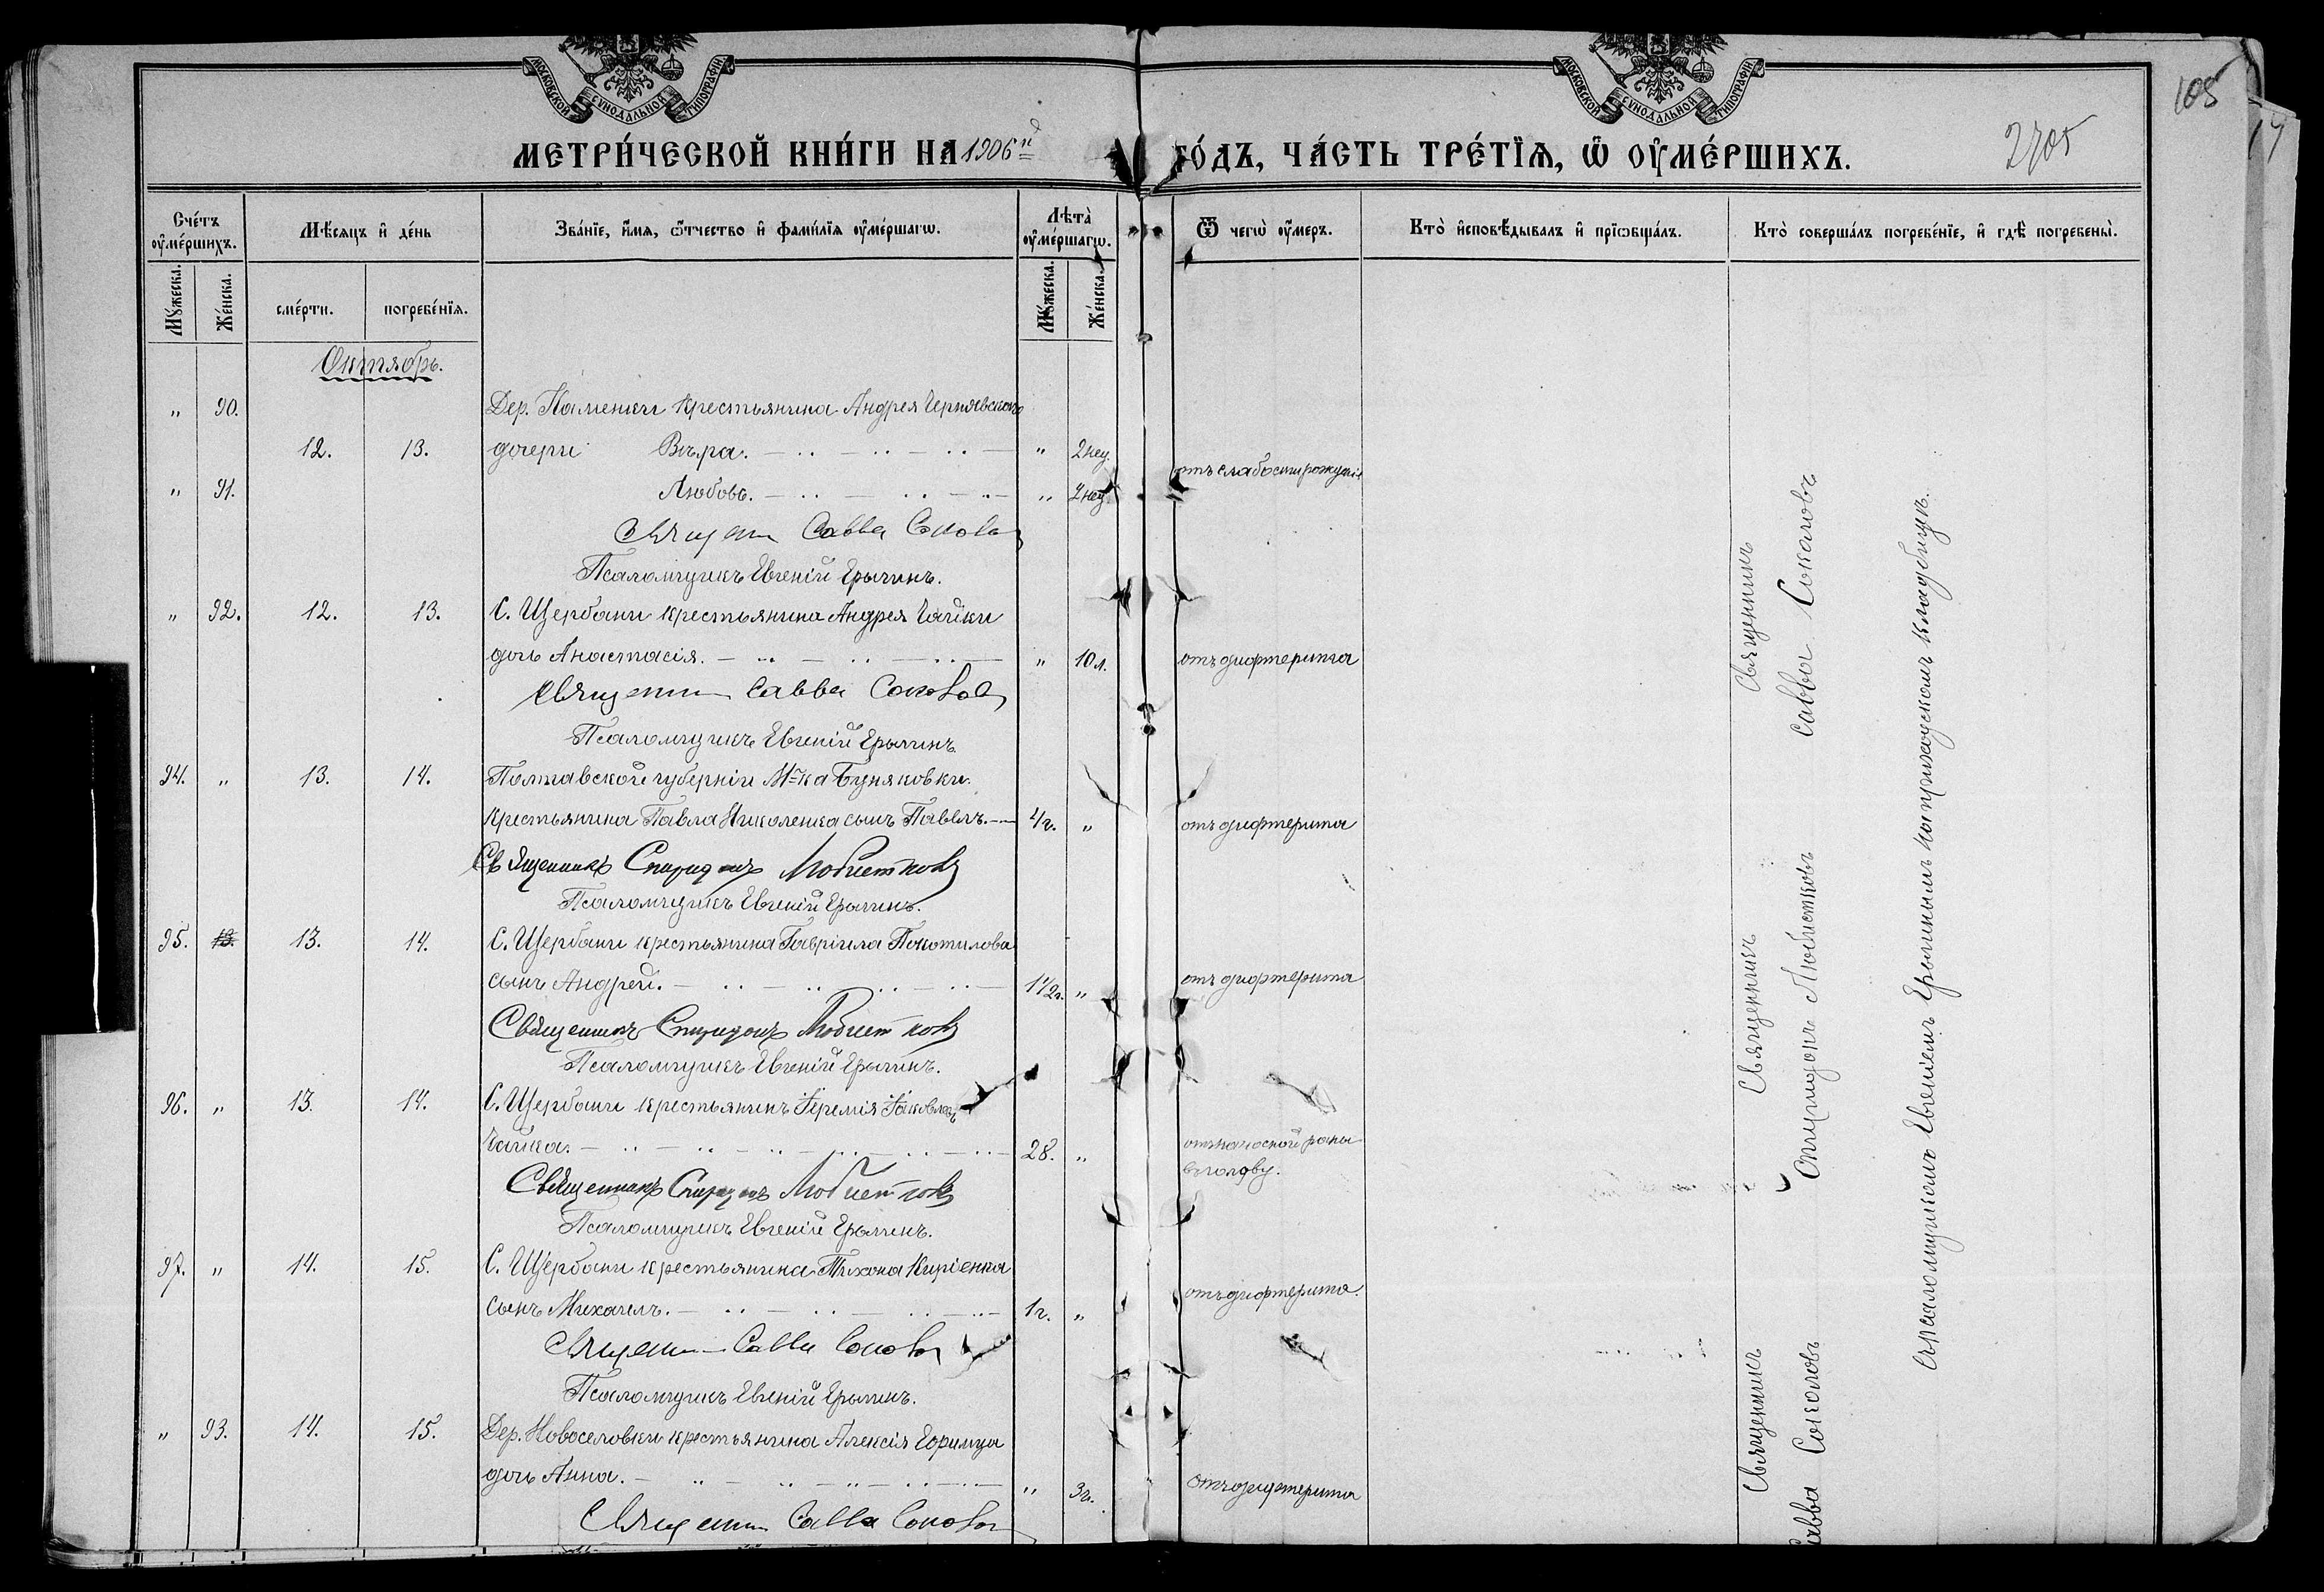 МОСКОВСКОЙ СѴНОДАЛЬНОЙ ТИПОГРАФІИ
МОСКОВСКОЙ СѴНОДАЛЬНОЙ ТИПОГРАФІИ
105
МЕТРИ́ЧЕСКОЙ КНИ́ГИ НА 1906й ГО́ДЪ, ЧА́СТЬ ТРЕ́ТЇѦ, Ѡ҆ ОУ҆МЕ́РШИХЪ.
2705
Сче́тъ оу҆ме́ршихъ. Мѣ́сяцъ и҆ де́нь Зва́нїе, и҆́мя, ѻ҆́тчество и҆ фами́лїя оу҆ме́ршагѡ. Лѣ́та оу҆ме́ршагѡ. Ѿ чегѡ̀ оу҆́меръ. Кто̀ и҆сповѣ́дывалъ и҆ прїѡбща́лъ. Кто̀ соверша́лъ погребе́нїе, и҆ гдѣ̀ погребены̀.
Му́жеска. Же́нска. сме́рти. погребе́нїя. Му́жеска. Же́нска.
Октябрь.
" 90. Дер. Каменки крестьянина Андрея Чернявскаго
12. 13. дочери Вѣра. " 2 нед.
отъ слабости рожденія
" 91. Любовь. " 2 нед.
Священник Савва Соколов
Псаломщикъ Евгеній Ерыгинъ.
" 92. 12. 13. С. Щербани крестьянина Андрея Чайки
дочь Анастасія. " 10 л. отъ дифтерита
Священник Савва Соколов
Псаломщикъ Евгеній Ерыгинъ
94. " 13. 14. Полтавской губерніи М-ка Буняковки
крестьянина Павла Николенка сынъ Павелъ. 4 г. " отъ дифтерита
Священникъ Спиридонъ Любистковъ
Псаломщикъ Евгеній Ерыгинъ.
95. 13. 14. С. Щербани крестьянина Гавріила Покотилова
сынъ Андрей. 1 1/2 г. " отъ дифтерита
Священникъ Спиридонъ Любистковъ
Псаломщикъ Евгеній Ерыгинъ.
96. " 13. 14. С. Щербани крестьянинъ Іеремія Іаковлевъ
Чайка. 28. " раны
въ голову.
Священникъ Спиридонъ Любистковъ
Псаломщикъ Евгеній Ерыгинъ.
97. " 14. 15. С. Щербани крестьянина Тихона Киріенка
сынъ Михаилъ. 1 г. " отъ дифтерита.
Священник Савва Соколов
Псаломщикъ Евгеній Ерыгинъ.
" 93. 14. 15. Дер. Новоселовки крестьянина Алексія
дочь Анна. " 3 г. отъ дифтерита
Священник Савва Соколов
Священникъ
Савва Соколовъ
Священникъ
Спиридонъ Любистковъ
Священникъ
Савва Соколовъ
съ псаломщикомъ Евгеніемъ Ерыгинымъ на приходскомъ кладбищѣ.